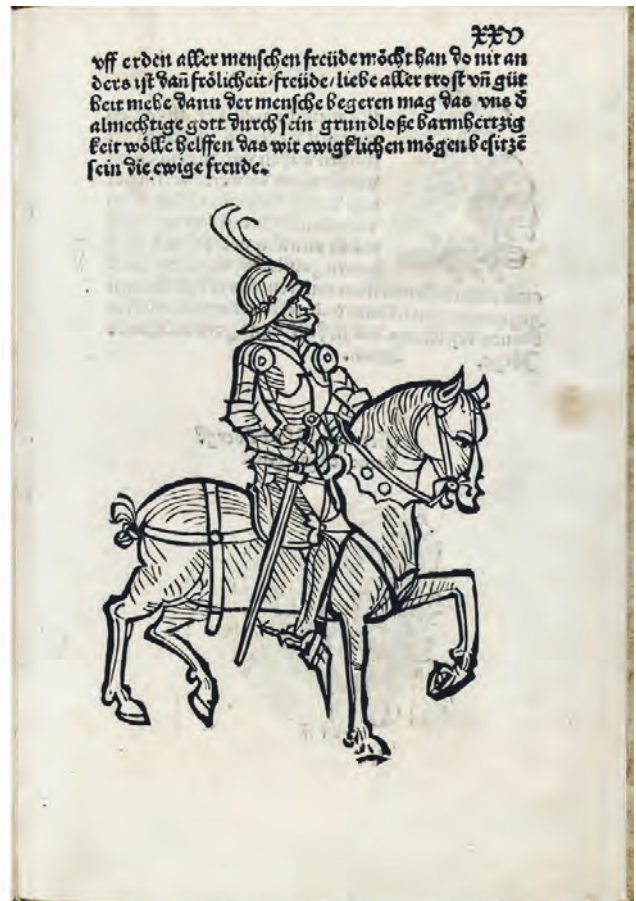 XXV
vff erden aller menschen freüde möcht han do nit an
ders ist dañ frölicheit/freüde/liebe aller trost vñ güt
heit mehe dann der mensche begeren mag das vns đ
almechtige gott durch sein grundloße barmhertzig
keit wölle helffen das wir ewigklichen mögen besitzē
sein die ewige freude.